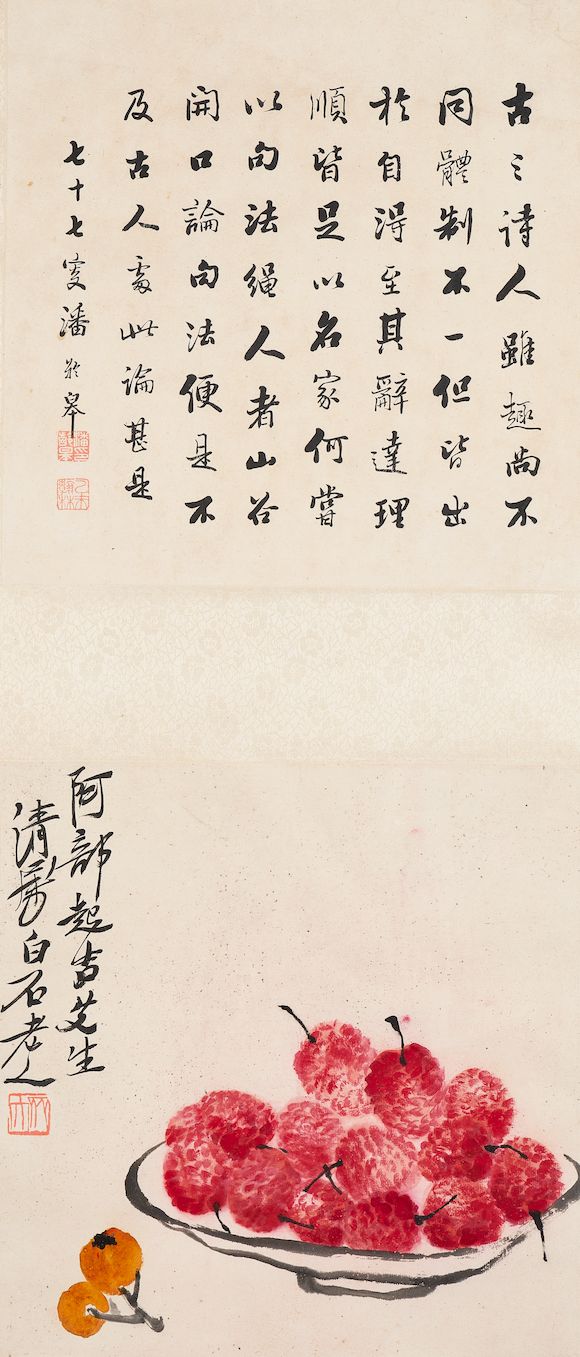 古之詩人雖趣尚不
同體制不一但皆出
於自得至其辭達理
順皆足以名家何嘗
以句法繩人者山谷
開口論句法便是不
及古人處此論甚是
七十七叟潘齡皋
阿部起吉先生
清屬白石老人